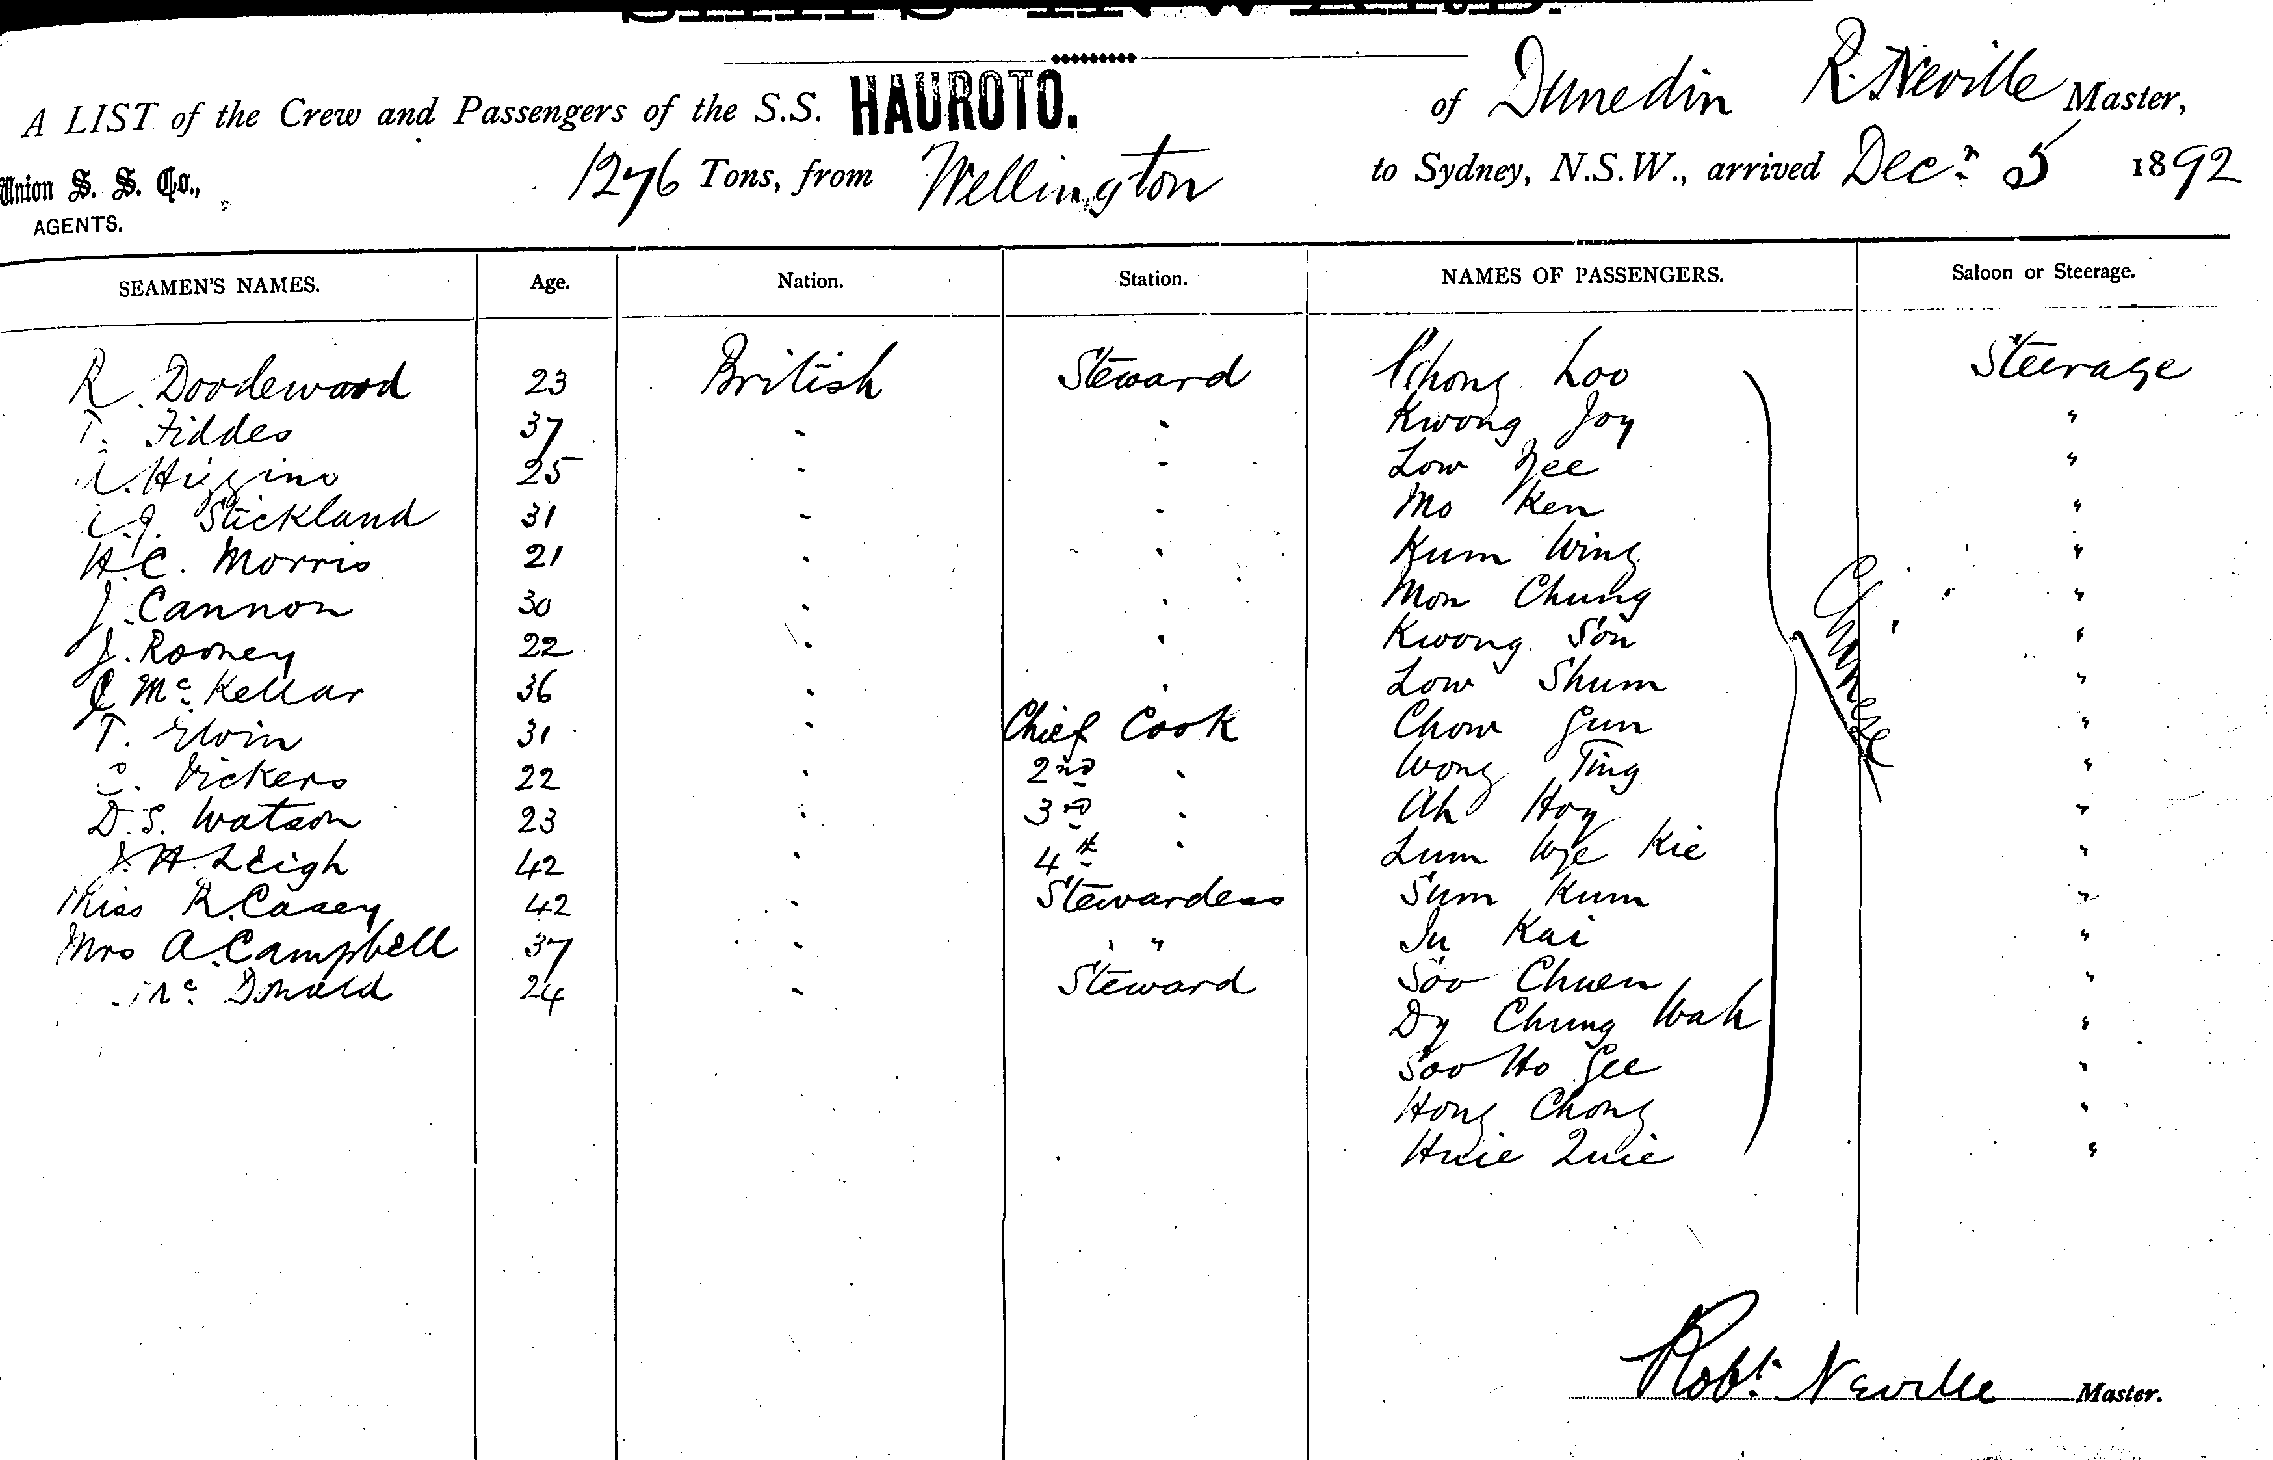 A LIST of the Crew and Passengers of the S.S. HAUROTO. of Dunedin R. Neville Master,
Union S. S. Co., 1276 Tons, from Wellington to Sydney, N.S.W., arrived Decr. 5 1892
AGENTS.
SEAMEN'S NAMES. Age. Nation. Station. NAMES OF PASSENGERS. Saloon or Steerage.
R. Doodeward 23 British Steward Chong Loo Steerage
T. Fiddes 37 " " Kwong Joy "
Higgins 25 " " Low Yee "
J. Stickland 31 " " Mo Ken "
H.C. Morris 21 " " Kum Wing "
J. Cannon 30 " " Mon Chung "
J. Rooney 22 " " Kwong Son "
C McKellar 36 " " Low Shum "
T. Elvin 31 " Chief Cook Chow Gun "
C. Vickers 22 " 2nd " Wong Ting "
D.S. Watson 23 " 3rd " Ah Hoy "
J.H. Leigh 42 " 4th " Lum Wye Kie "
Miss R. Casey 42 " Stewardess Sum Kum "
Mrs A. Campbell 37 " " Su Kai "
McDonald 24 " Steward Soo Chuen "
Dy Chung Wah "
Soo Ho Gee "
Hong Chong "
Huie Quie "
Chinese
Robt. Neville Master.